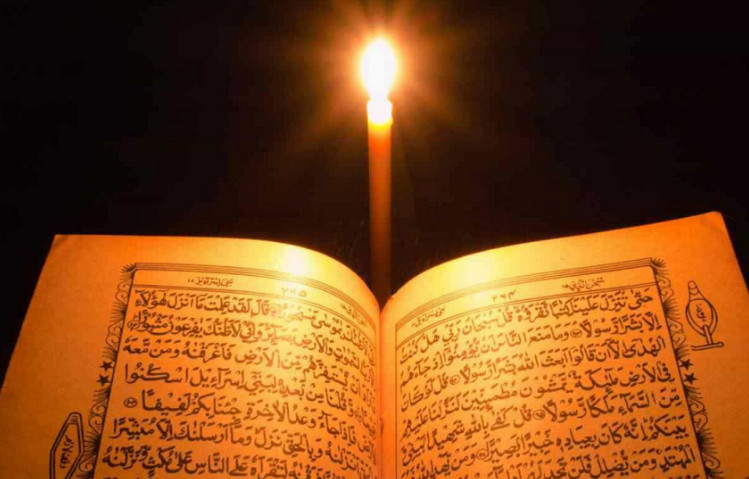 ٢٦٤
حَتّٰى تُنَزِّلَ عَلَيْنَا كِتٰبًا نَّقْرَؤُهٗ قُلْ سُبْحَانَ رَبِّيْ هَلْ كُنْتُ
اِلَّا بَشَرًا رَّسُوْلًا وَمَا مَنَعَ النَّاسَ اَنْ يُّؤْمِنُوْٓا اِذْ جَآءَهُمُ
الْهُدٰٓى اِلَّآ اَنْ قَالُوْٓا اَبَعَثَ اللّٰهُ بَشَرًا رَّسُوْلًا قُلْ لَّوْ كَانَ
فِي الْاَرْضِ مَلٰٓئِكَةٌ يَّمْشُوْنَ مُطْمَئِنِّيْنَ لَنَزَّلْنَا عَلَيْهِمْ
مِّنَ السَّمَآءِ مَلَكًا رَّسُوْلًا قُلْ كَفٰى بِاللّٰهِ شَهِيْدًا بَيْنِيْ
بَيْنَكُمْ اِنَّهٗ كَانَ بِعِبَادِهٖ خَبِيْرًا بَصِيْرًا وَمَنْ يَّهْدِ اللّٰهُ
الْمُهْتَدِ وَمَنْ يُّضْلِلْ فَلَنْ تَجِدَ لَهُمْ
٢٦٥
يٰمُوْسٰى مَسْحُوْرًا قَالَ لَقَدْ عَلِمْتَ مَآ اَنْزَلَ هٰٓؤُلَآءِ
السَّمٰوٰتِ وَالْاَرْضِ بَصَآئِرَ وَاِنِّيْ لَاَظُنُّكَ يٰفِرْعَوْنُ مَثْبُوْرًا
اَنْ يَّسْتَفِزَّهُمْ مِّنَ الْاَرْضِ فَاَغْرَقْنٰهُ وَمَنْ مَّعَهٗ
وَّقُلْنَا مِنْ بَعْدِهٖ لِبَنِيْٓ اِسْرَآءِيْلَ اسْكُنُوا
فَاِذَا جَآءَ وَعْدُ الْاٰخِرَةِ جِئْنَا بِكُمْ لَفِيْفًا
اَنْزَلْنٰهُ وَبِالْحَقِّ نَزَلَ وَمَآ اَرْسَلْنٰكَ اِلَّا مُبَشِّرًا
فَرَقْنٰهُ لِتَقْرَاَهٗ عَلَى النَّاسِ عَلٰى مُكْثٍ وَّنَزَّلْنٰهُ